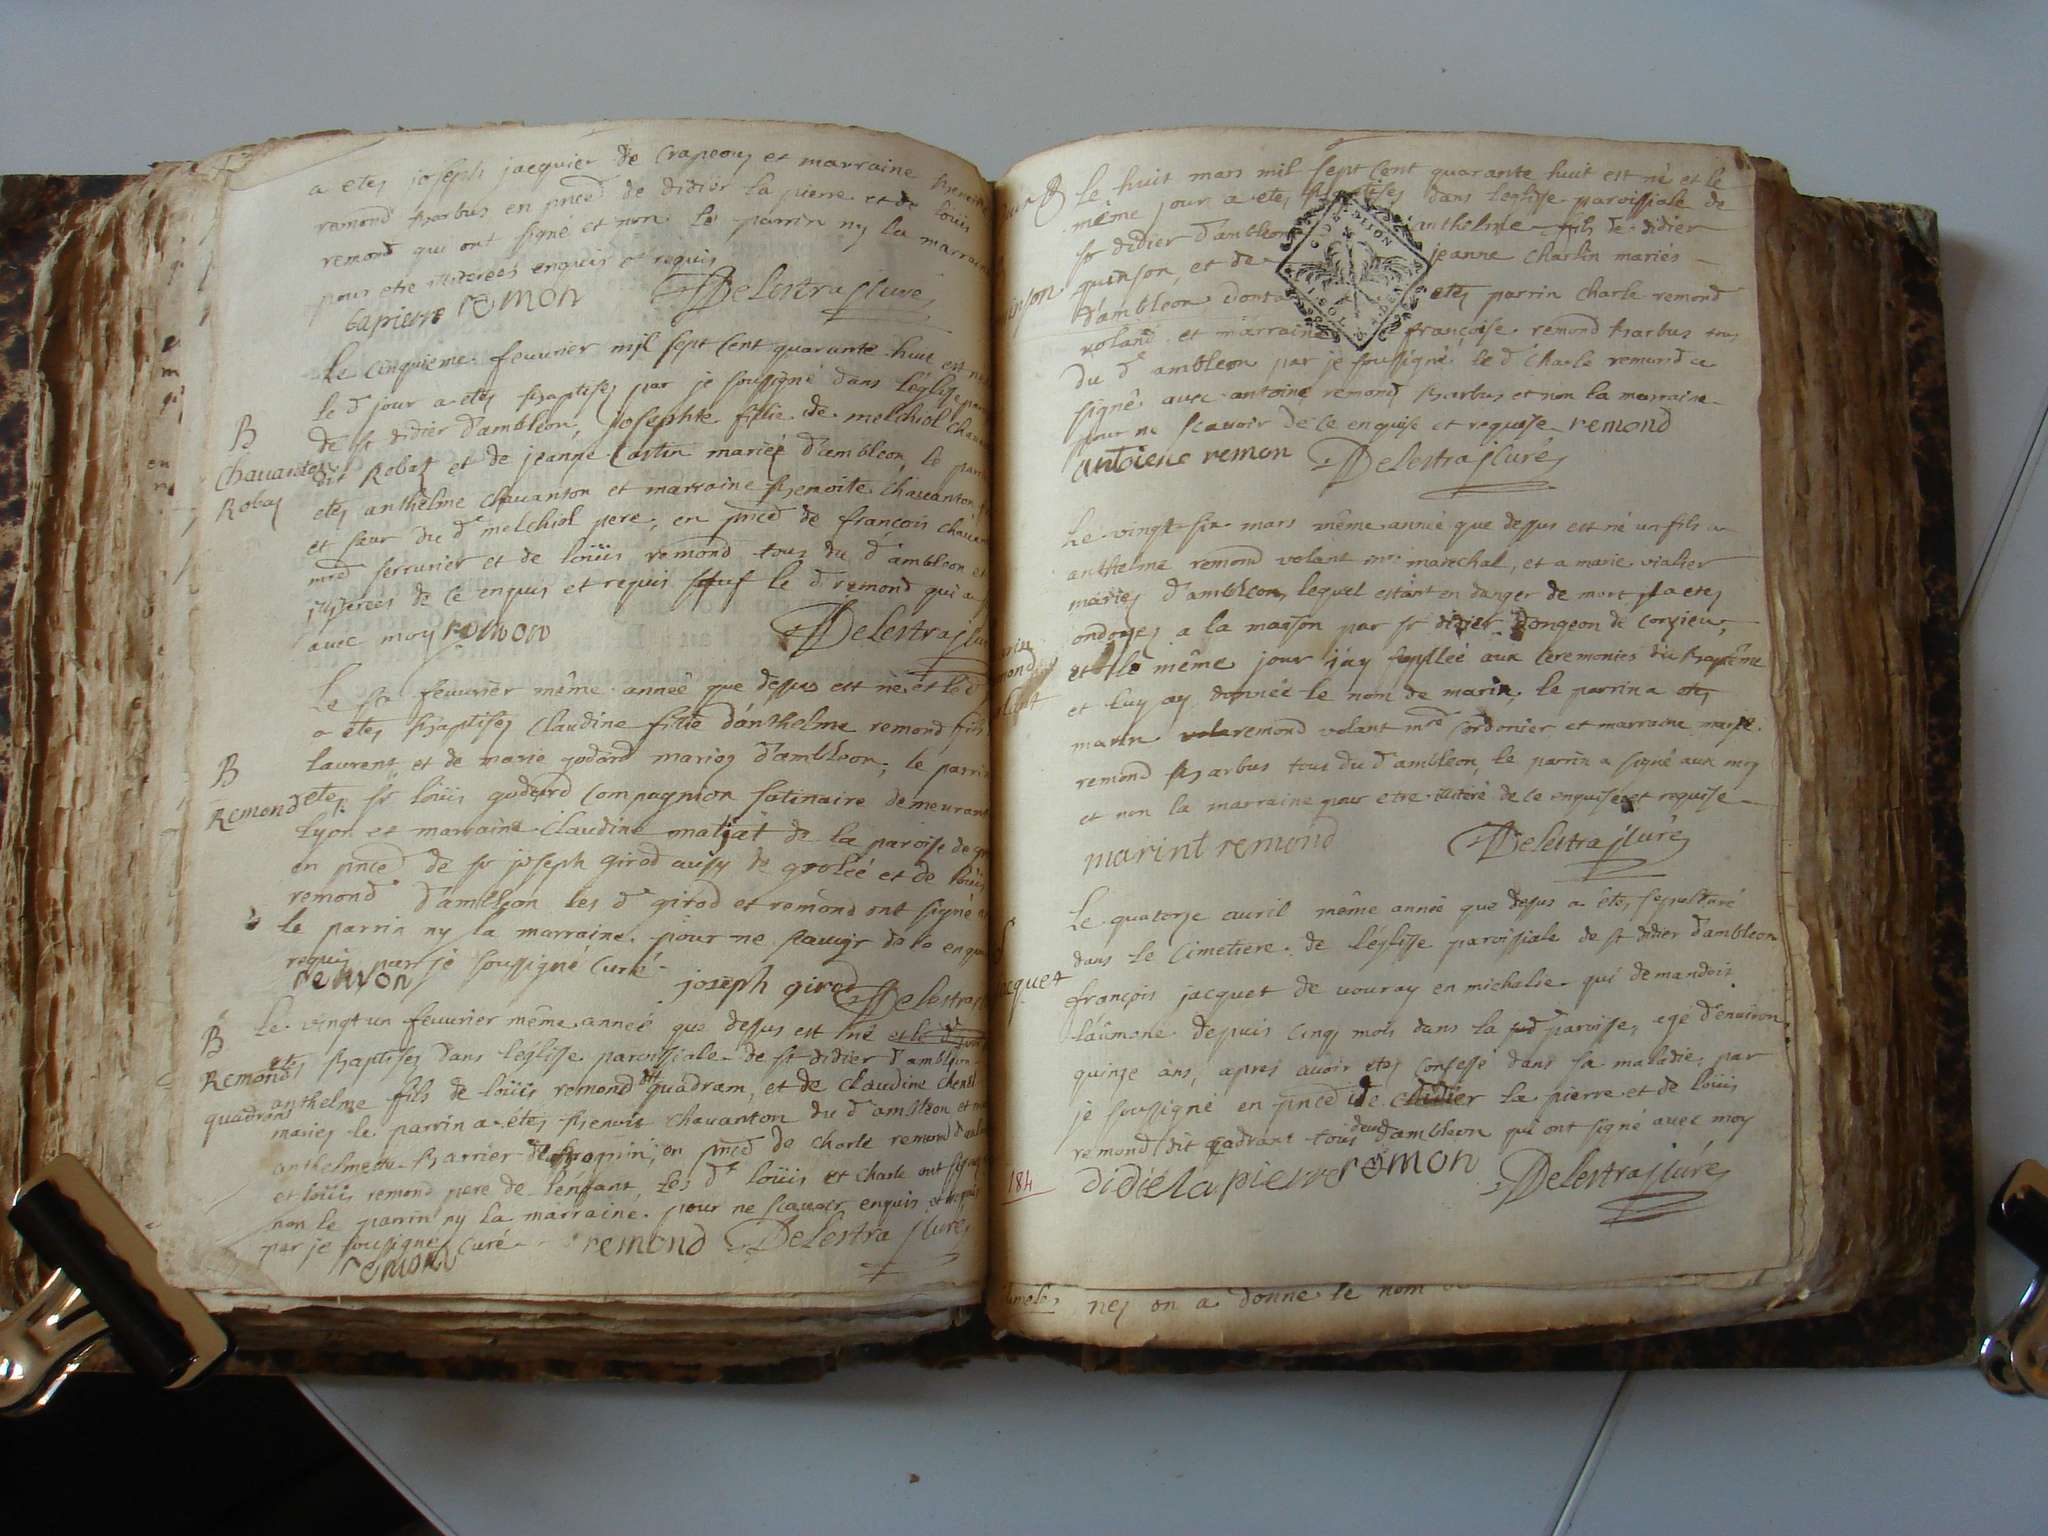 a etez joseph jacquier de Crapeou et marraine
remond barbus en pnce de didier la pierre et de loüis
remond qui ont signé et non le parrin ny la marraine
pour etre illiterees enquis et requis
lapierre remon Delestra Curé
Le Cinquieme feuurier mil sept Cent quarante huit est née
le d jour a etez baptisez par je soussigné dans l'églize
B
de st didier d'ambleon, josephte fille de melchiol
Chauanton
dit Robaz et de jeanne Castin mariéz d'ambleon, le parrin
Robaz
etez anthelme chauanton et marraine benoite chauanton
et sœur du d melchiol pere, en pnce de françois
mre serrurier et de loüis remond tous du d ambleon et
illiterees de ce enquis et requis sauf le d remond qui a
auec moy remon Delestra Cure
Le six feuurier même anneé que dessus est née et le d
a etez baptisez Claudine fille d'anthelme remond fils
laurent et de marie godard mariez d'ambleon, le parrin
B
etez sr loüis godard Compagnion satinaire demeurant
Remond
lyon et marraine Claudine de la paroise de
en pnce de sr joseph girod aussy de groleé et de loüis
remond d'ambleon les d girod et remond ont signé
le parrin ny la marraine pour ne scauoir de ce
requis par je soussigné curé
remon joseph girod Delestra
B
Le vingt un feuurier même anneé que dessus est né et le d jour
etez baptisez dans l'églisse paroissiale de st didier d'ambleon
Remond
anthelme fils de loüis remond dit quadram, et de Claudine
quadrans
mariez le parrin a etez benoit chauanton du d ambleon et
anthelme barrier en pnce de charle remond
et loüis remond pere de l'enfant, les d loüis et charle ont signé
non le parrin ny la marraine pour ne scauoir enquis et requis
par je soussigné curé remond Delestra Curé
remond
B
Le huit mars mil sept Cent quarante huit est né et le
même jour a etez baptisez dans l'eglisse paroissiale de
st didier d'ambleon anthelme fils de didier
quinson, et de jeanne charlin mariés
d'ambleon, dont a etez parrin charle remond
voland et marraine françoise remond barbus tous
du d ambleon par je soussigné le d charle remond a
signé auec antoine remond barbus et non la marraine
pour ne scauoir de ce enquise et requise remond
antoiene remon Delestra Curé
Le vingt six mars même anneé que dessus est né un fils a
anthelme remond volant mre marechal, et a marie vialier
mariez d'ambleon, lequel estant en danger de mort il a etez
ondoyez a la maison par sr didier dongeon de Conzieu,
et le même jour j'ay suplleé aux ceremonies du baptême
et luy ay donneé le nom de marin, le parrin a etez
marin remond volant mre Cordonier et marraine
remond barbus tous du d ambleon, le parrin a signé aux moy
et non la marraine pour etre illiteré de ce enquise et requise
marint remond Delestra Curé
Le quatorze auril même anneé que dessus a etez sepulturé
dans le Cimetiere de l'églisse paroissiale de st didier d'ambleon
françois jacquet de uouray en michalie qui demandoit
l'aûmone depuis Cinq mois dans la sud paroisse, egé d'enuiron
quinze ans, aprés auoir etez Confessé dans sa maladie, par
je soussigné en pnce de didier la pierre et de loüis
remond dit cadrant tous deux d'ambleon qui ont signé auec moy
184
didie lapierre remon Delestra Curé
nez on a donne le nom